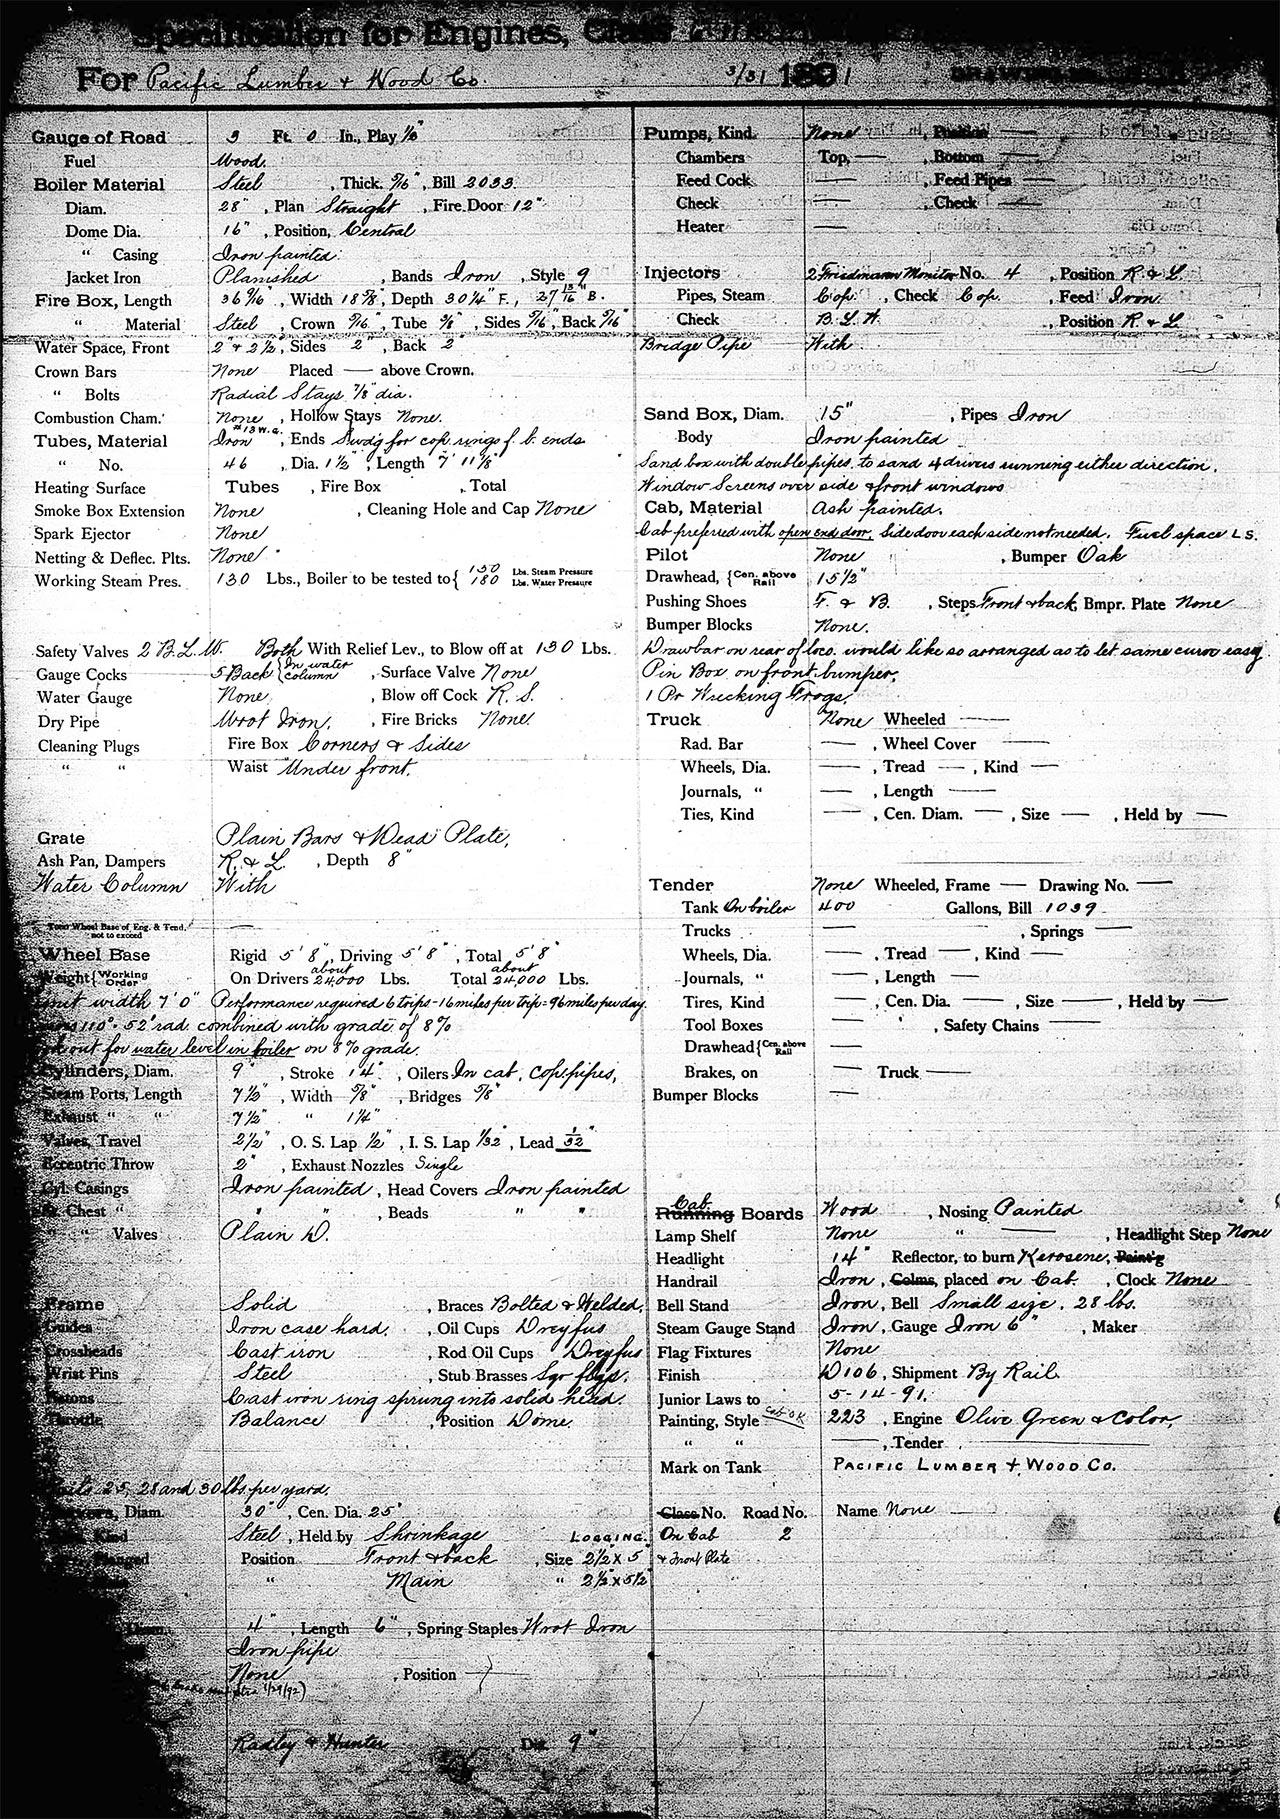 Specification for Engines, Class
For Pacific Lumber & Wood Co. 3/31 1891
Gauge of Road 3 Ft. 0 In., Play 1/8"
Fuel Wood.
Boiler Material Steel , Thick. 5/16" , Bill 2033
Diam. 28" , Plan Straight , Fire Door 12"
Dome Dia. 16" , Position, Central
" Casing Iron painted.
Jacket Iron Planished , Bands Iron , Style 9
Fire Box, Length 36 9/16 , Width 18 5/8 , Depth 30 1/4" F., 27 13/16" B.
" Material Steel , Crown 5/16" , Tube 3/8" , Sides 5/16" , Back 5/16"
Water Space, Front 2" & 2 1/2 , Sides 2" , Back 2"
Crown Bars None Placed — above Crown.
" Bolts Radial Stays 7/8" dia.
Combustion Cham. None , Hollow Stays None.
Tubes, Material Iron #13 W.G. , Ends Swdg for cop. rings f. b. ends
" No. 46 , Dia. 1 1/2" , Length 7' 11 1/8"
Heating Surface Tubes , Fire Box , Total
Smoke Box Extension None , Cleaning Hole and Cap None
Spark Ejector None
Netting & Deflec. Plts. None
Working Steam Pres. 130 Lbs., Boiler to be tested to { 150 Lbs. Steam Pressure
180 Lbs. Water Pressure
Safety Valves 2 B.L.W. Both With Relief Lev., to Blow off at 130 Lbs.
Gauge Cocks 5 Back { In water column , Surface Valve None
Water Gauge None , Blow off Cock R. S.
Dry Pipe Wrot Iron. , Fire Bricks None.
Cleaning Plugs Fire Box Corners & Sides
" " Waist Under front.
Grate Plain Bars & Dead Plate,
Ash Pan, Dampers R. & L. , Depth 8"
Water Column With
Total Wheel Base of Eng. & Tend. not to exceed —
Wheel Base Rigid 5' 8" , Driving 5' 8" , Total 5' 8"
Weight { Working Order On Drivers about 24,000 Lbs. Total about 24,000 Lbs.
width 7' 0" Performance required 6 trips - 16 miles per trip = 96 miles per day.
110° - 52' rad. combined with grade of 8%
out for water level in boiler on 8% grade.
Cylinders, Diam. 9" , Stroke 14" , Oilers In cab, Cop. pipes,
Steam Ports, Length 7 1/2" , Width 5/8" , Bridges 5/8"
Exhaust " " 7 1/2" " 1 1/4"
Valves, Travel 2 1/2" , O. S. Lap 1/2" , I. S. Lap 1/32" , Lead 1/32"
Eccentric Throw 2" , Exhaust Nozzles Single
Cyl. Casings Iron painted , Head Covers Iron painted
Chest " " " , Beads " "
" " Valves Plain D.
Frame Solid , Braces Bolted & Welded.
Guides Iron case hard. , Oil Cups Dreyfus
Crossheads Cast iron , Rod Oil Cups Dreyfus
Wrist Pins Steel , Stub Brasses
Pistons Cast iron ring sprung into solid head.
Throttle Balance , Position Dome.
25, 28 and 30 lbs per yard.
Diam. 30" , Cen. Dia. 25"
Kind Steel , Held by Shrinkage LOGGING.
Flanged Position Front & back , Size 2 1/2" x 5"
" Main " 2 1/2" x 5 1/2"
4" , Length 6" , Spring Staples Wrot Iron
Iron pipe
None , Position —
1/29/92)
Radley & Hunter Dia. 9"
Pumps, Kind. None , Position —
Chambers Top, — , Bottom —
Feed Cock — , Feed Pipes —
Check — , Check —
Heater —
Injectors 2 Friedmann Monitor No. 4 , Position R & L.
Pipes, Steam Cop. , Check Cop. , Feed Iron
Check B. L. W. , Position R & L.
Bridge Pipe With
Sand Box, Diam. 15" , Pipes Iron
Body Iron painted
Sand box with double pipes, to sand 4 drivers running either direction.
Window Screens over side & front windows
Cab, Material Ash painted.
Cab preferred with open end door. Side door each side not needed. Fuel space L S.
Pilot None , Bumper Oak
Drawhead, { Cen. above Rail 15 1/2"
Pushing Shoes F. & B. , Steps Front & back, Bmpr. Plate None
Bumper Blocks None.
Drawbar on rear of loco. would like so arranged as to let same curve easy
Pin Box on front bumper.
1 Pr Wrecking Frogs.
Truck None Wheeled —
Rad. Bar — , Wheel Cover —
Wheels, Dia. — , Tread — , Kind —
Journals, " — , Length —
Ties, Kind — , Cen. Diam. — , Size — , Held by —
Tender None Wheeled, Frame — Drawing No. —
Tank On boiler 400 Gallons, Bill 1039
Trucks — , Springs —
Wheels, Dia. — , Tread — , Kind —
Journals, " — , Length —
Tires, Kind — , Cen. Dia. — , Size — , Held by —
Tool Boxes — , Safety Chains —
Drawhead { Cen. above Rail —
Brakes, on — Truck —
Bumper Blocks —
Cab
Running Boards Wood , Nosing Painted
Lamp Shelf None " — , Headlight Step None
Headlight 14" Reflector, to burn Kerosene, Paint'g
Handrail Iron , Colms, placed on Cab. , Clock None
Bell Stand Iron , Bell Small size. 28 lbs.
Steam Gauge Stand Iron , Gauge Iron 6" , Maker
Flag Fixtures None
Finish D106 , Shipment By Rail.
Junior Laws to 5-14-91.
Painting, Style Cab OK 223 , Engine Olive Green & Color,
" " — , Tender —
Mark on Tank PACIFIC LUMBER & WOOD CO.
Class No. Road No. Name None
On Cab 2
& Front Plate